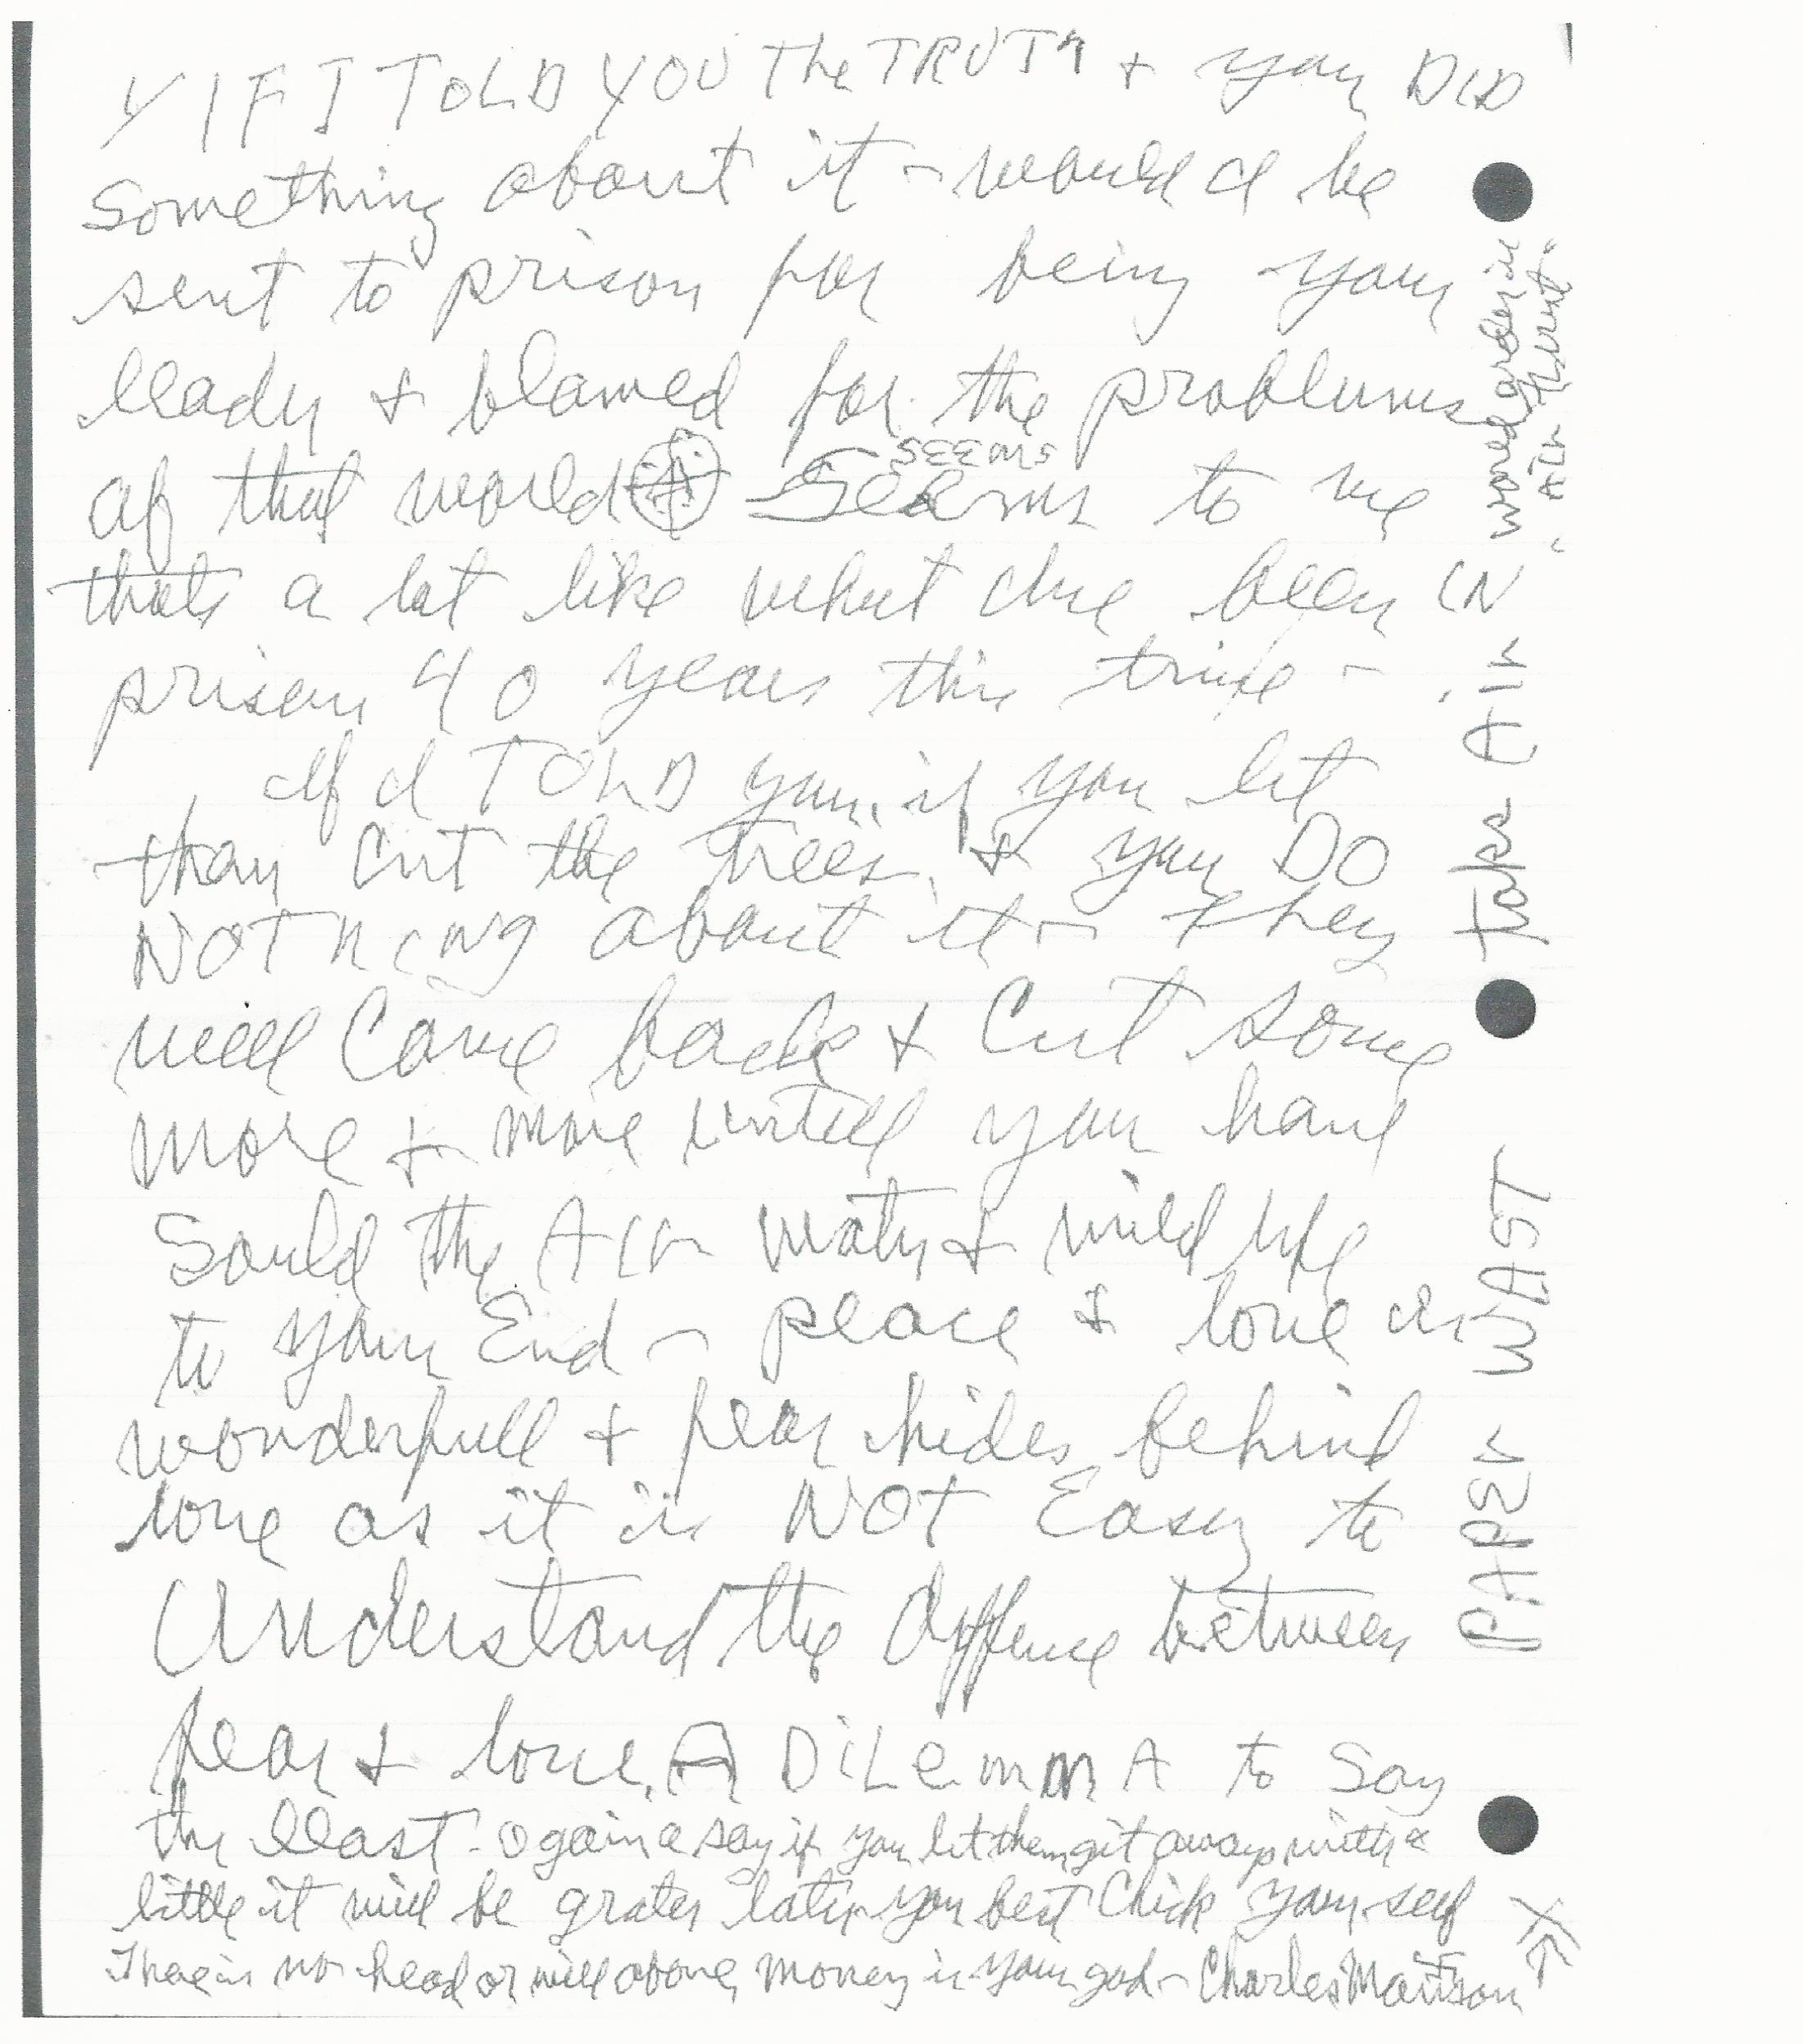 Y IF I TOLD YOU The TRUTh + you DID
Something about it - would I be
sent to prison for being your
leady + blamed for the problums
of that world Seems to me
thats a lot like what Ive been IN
prison 40 years this trip -
If I TOLD you, if you let
them Cut the trees, + you DO
NOTHING about it - they
will Come back + Cut some
more + more untill you have
Sould the AIR water + wild life
to your End - peace + love is
wonderfull + fear hides behind
love as it is NOT Easy to
Understand the between
fear + love, A DiLemmA to Say
the least - again I say if you let them git away with a
little it will be grater later you best Chick your self
There is no head or will above, money is your god - Charles Manson
PAPER WAST
Take AIR